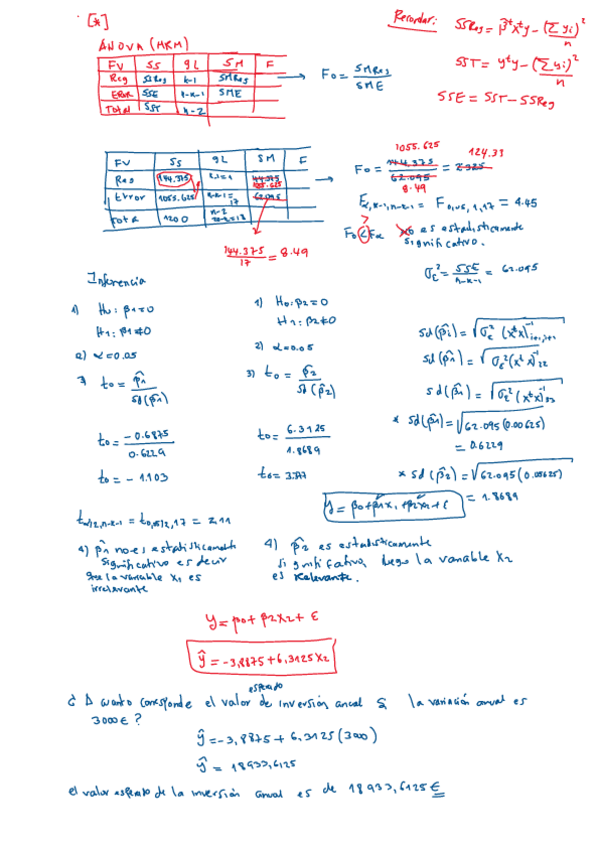 [*]
Recordar: SSReg = β̂ᵗxᵗy - (Σyi)²/n
SST = yᵗy - (Σyi)²/n
SSE = SST - SSReg
ANOVA (MRM)
FV SS gL SM F
Reg SSReg k-1 SMReg
Error SSE n-k-1 SME
Total SST n-2
F0 = SMReg/SME
FV SS gL SM F
Reg 144.375 2-1=1 144.375 1055.625
Error 1055.625 n-k-1= 17 62.095
Total 1200 n-2
144.375/17 = 8.49
F0 = 1055.625/8.49 = 124.33
144.375/62.095 = 2.325
Fα,k-1,n-k-1 = F0,05,1,17 = 4.45
F0 < Fα > no es estadísticamente
significativo.
σε² = SSE/n-k-1 = 62.095
Inferencia
1) H0: β1=0
H1: β1≠0
2) α=0.05
3) t0 = β̂1/sd(β̂1)
t0 = -0.6875/0.6229
t0 = -1.103
1) H0: β2=0
H1: β2≠0
2) α=0.05
3) t0 = β̂2/sd(β̂2)
t0 = 6.3125/1.8689
t0 = 3.377
sd(β̂i) = √σε² (xᵗx)⁻¹i+1,i+1
sd(β̂1) = √σε² (xᵗx)⁻¹22
sd(β̂1) = √σε² (xᵗx)⁻¹33
* sd(β̂1) = √62.095(0.00625)
= 0.6229
* sd(β̂2) = √62.095(0.05625)
= 1.8689
y = β0+β1x1+β2x2+ε
tα/2,n-k-1 = t0,05/2,17 = 2.11
4) β̂1 no es estadísticamente
significativo es decir
que la variable x1 es
irrelevante
4) β̂2 es estadísticamente
significativa, luego la variable x2
es Relevante.
y = β0+ β2x2 + ε
ŷ = -3,8875 + 6,3125 x2
esperado
¿ A cuanto corresponde el valor de inversión anual si la variación anual es
3000€ ?
ŷ = -3,8875 + 6,3125 (3000)
ŷ = 18933,6125
el valor esperado de la inversión anual es de 18933,6125 €